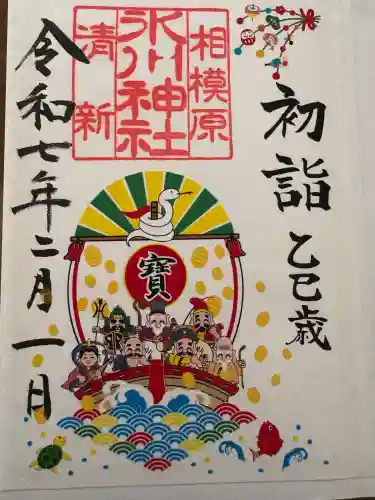 初詣
乙巳歳
相模原
氷川神社
清新
寶
令和七年二月一日